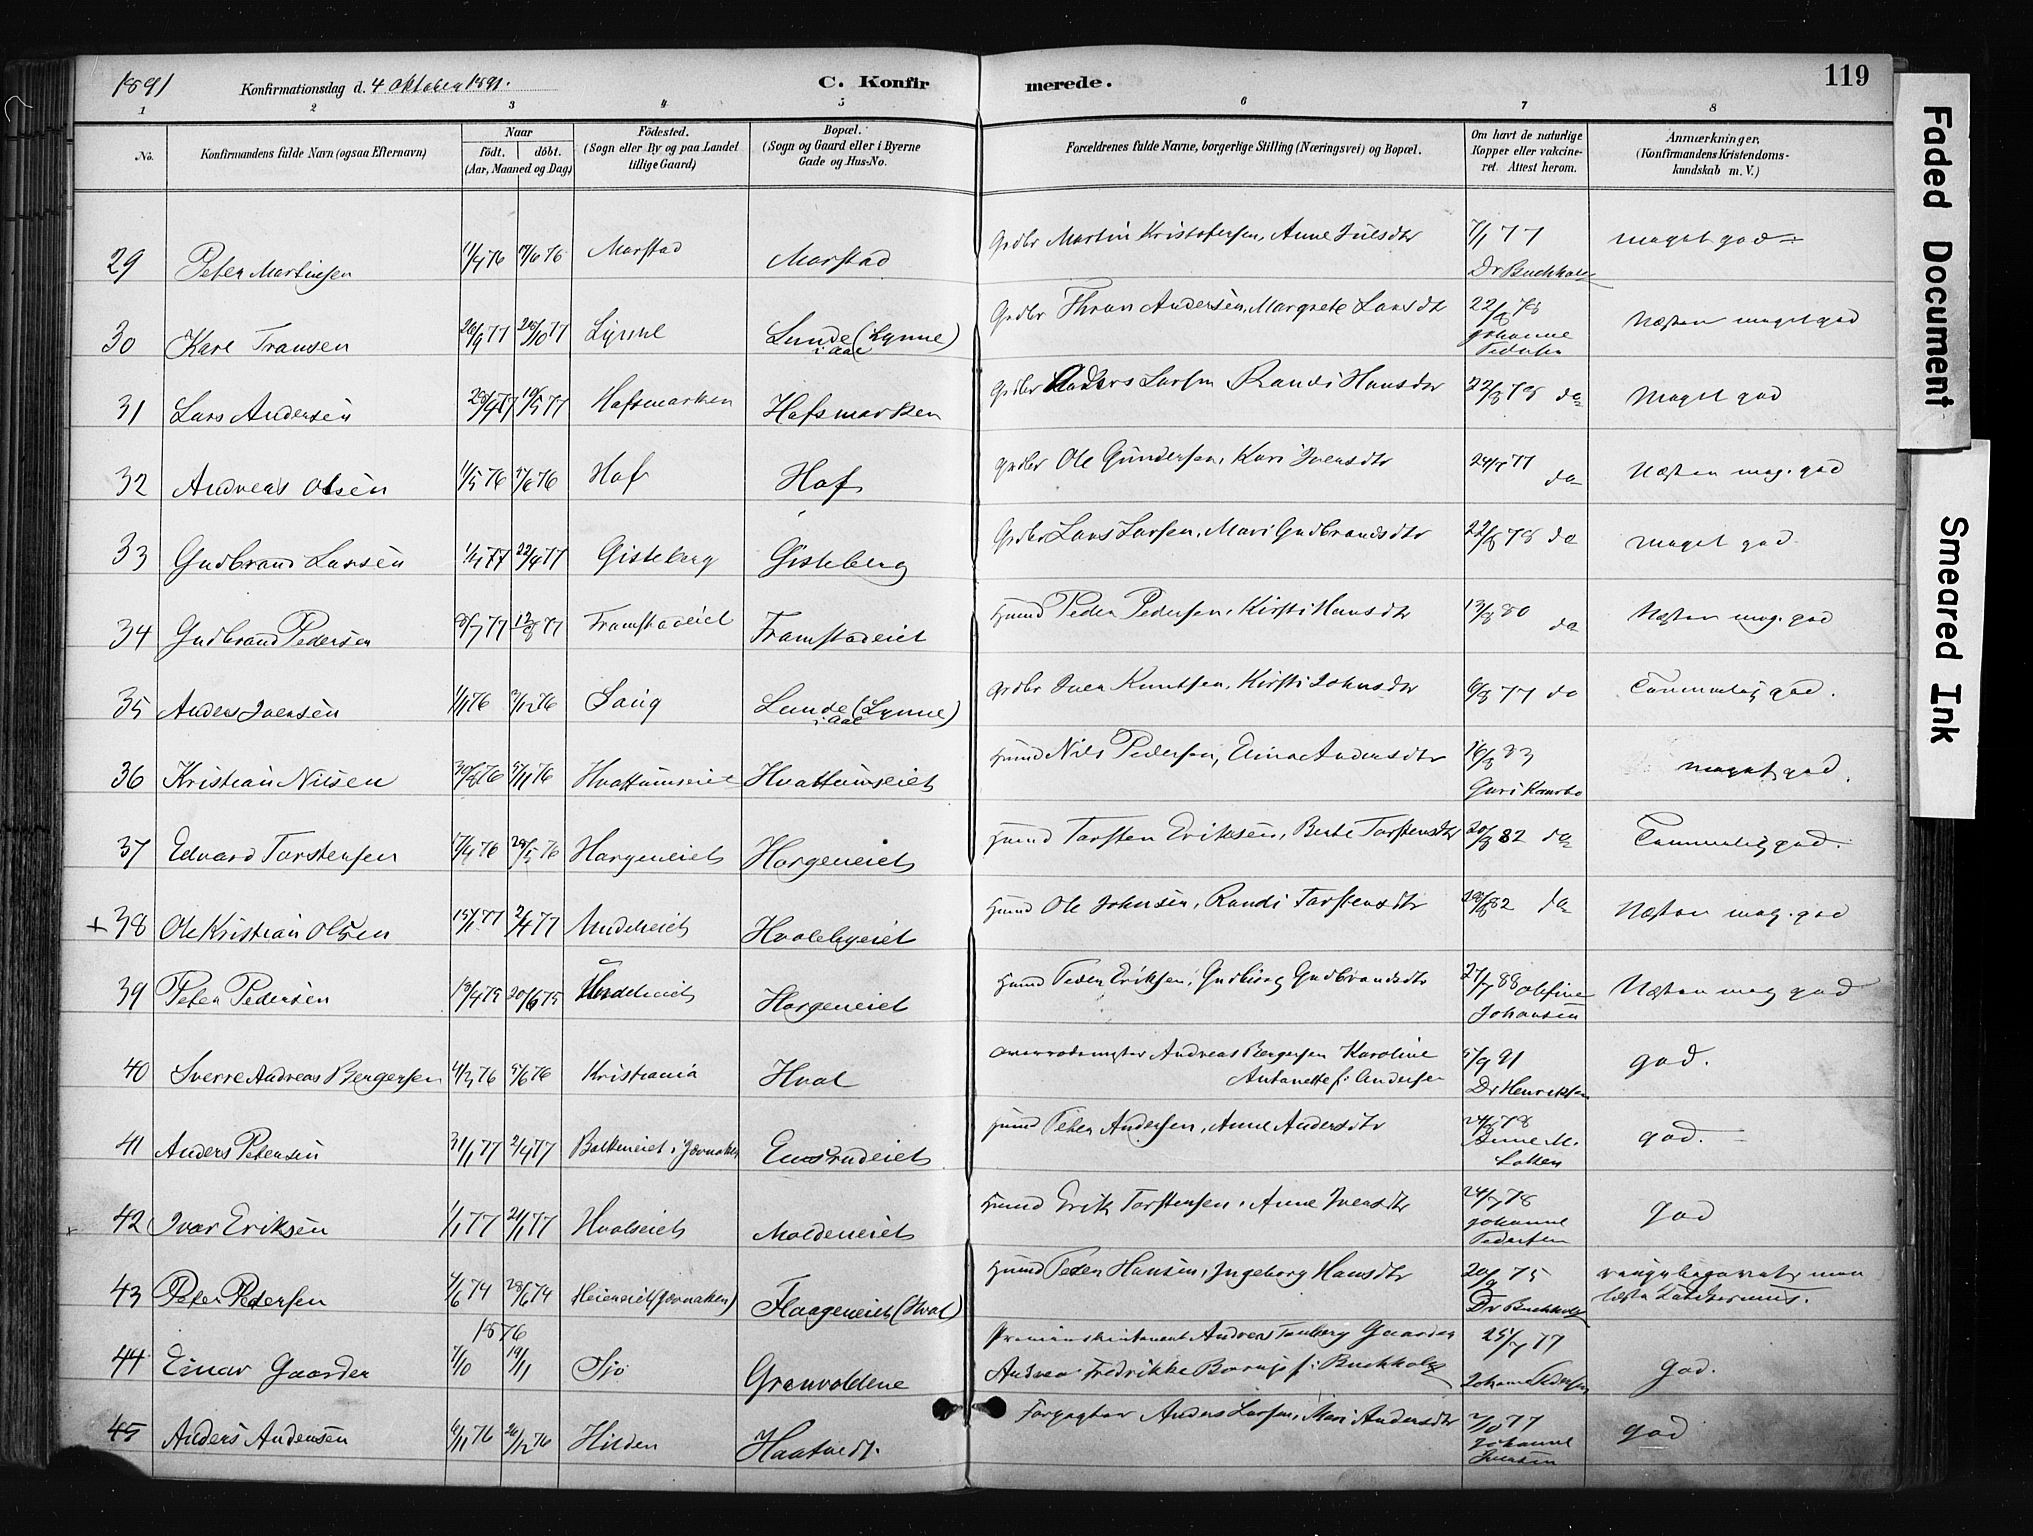 1891 Konfirmationsdag d. 4 oktober 1891. C. Konfirmerede. 119
1 2 3 4 5 6 7 8
No. Konfirmandens fulde Navn (ogsaa Efternavn) Naar født. døbt. (Aar, Maaned og Dag) Fødested. (Sogn eller By og paa Landet tillige Gaard) Bopæl. (Sogn og Gaard eller i Byerne Gade og Hus-No. Forældrenes fulde Navne, borgerlige Stilling (Næringsvei) og Bopæl. Om havt de naturlige Kopper eller vakcineret. Attest herom. Anmærkninger, (Konfirmandens Kristendomskundskab m. V.)
29 Peter Martinsen Morstad Morstad Grdbr Martin Kristofersen, Anne Julsdtr 7/1 77 Dr Buchholz meget god
30 Karl Transen 20/9 77 28/10 77 Lynne Lunde (Lynne) i Aal Grdbr Thron Andersen, Margrete Larsdtr 22/8 78 Johanne Pedersen Næsten meget god
31 Lars Andersen Hofsmarken Hofsmarken Grdbr Anders Larsen Randi Hansdtr 22/8 78 do Meget god
32 Andreas Olsen 11/5 76 5/6 76 Hof Hof Grdbr Ole Gundersen, Kari Iversdtr do Næsten meg. god
33 Gudbrand Larsen 1/1 77 22/4 77 Gisleberg Gisleberg Grdbr Lars Larsen, Mari Gudbrandsdtr 22/8 78 do meget god
34 Gudbrand Pedersen 12/8 77 Framstadeiet Framstadeiet Husmd Peder Pedersen, Kirsti Hansdtr 13/8 80 do Næsten meg. god
35 Anders Iversen 1/1 76 Saug Lunde (Lynne) i Aal Grdbr Iver Knutsen, Kirsti Johnsdtr 6/8 77 do Temmelig god.
36 Kristian Nilsen 5/11 76 Hvattumseiet Hvattumseiet Husmd Nils Pedersen, Eline Andersdtr 16/8 83 Guri meget god.
37 Edvard Torstensen 17/4 76 28/5 76 Horgeneiet Horgeneiet Husmd Torsten Eriksen, Berte Torstensdtr 20/8 82 do Temmelig god.
+38 Ole Kristian Olsen 15/1 77 2/4 77 Hvalebyeiet Husmd Ole Johnsen, Randi Torstensdtr do Næsten meg. god
39 Peter Pedersen 13/4 75 20/6 75 Horgeneiet Husmd Peder Eriksen, Gudbjørg Gudbrandsdtr 27/7 88 Olefine Johansen Næsten meg god
40 Sverre Andreas Bergersen 4/3 76 5/6 76 Kristiania Hval Andreas Bergersen Karoline Antonette f: Andersen 5/9 91 Dr Henriksen god.
41 Anders Petersen 31/1 77 2/4 77 Balkeneiet, Jevnaker Husmd Peter Andersen, Anne Andersdtr Anne M. Løkken god.
42 Ivar Eriksen 1/1 77 21/1 77 Hvalseiet Moldeneiet Husmd Erik Torstensen, Anne Iversdtr 24/7 78 Johanne Pedersen God
43 Peter Pedersen 4/6 74 28/6 74 Heieneiet (Jevnaker) Flaageneiet (Hval) Husmd Peder Hansen, Ingeborg Hansdtr 20/9 75 Dr Buchholz
44 Einar Gaarder 1876 7/10 19/11 Sjo Granvoldene Premierløitenant Andreas Tanberg Gaarder Andrea Fredrikke Borup f: Buchholz 25/7 77 Johanne Pedersen God.
45 Anders Andersen 26/12 76 Hilden Haatvedt. Forpagter Anders Larsen, Mari Andersdtr Johanne Iversen god
Faded Document
Smeared Ink